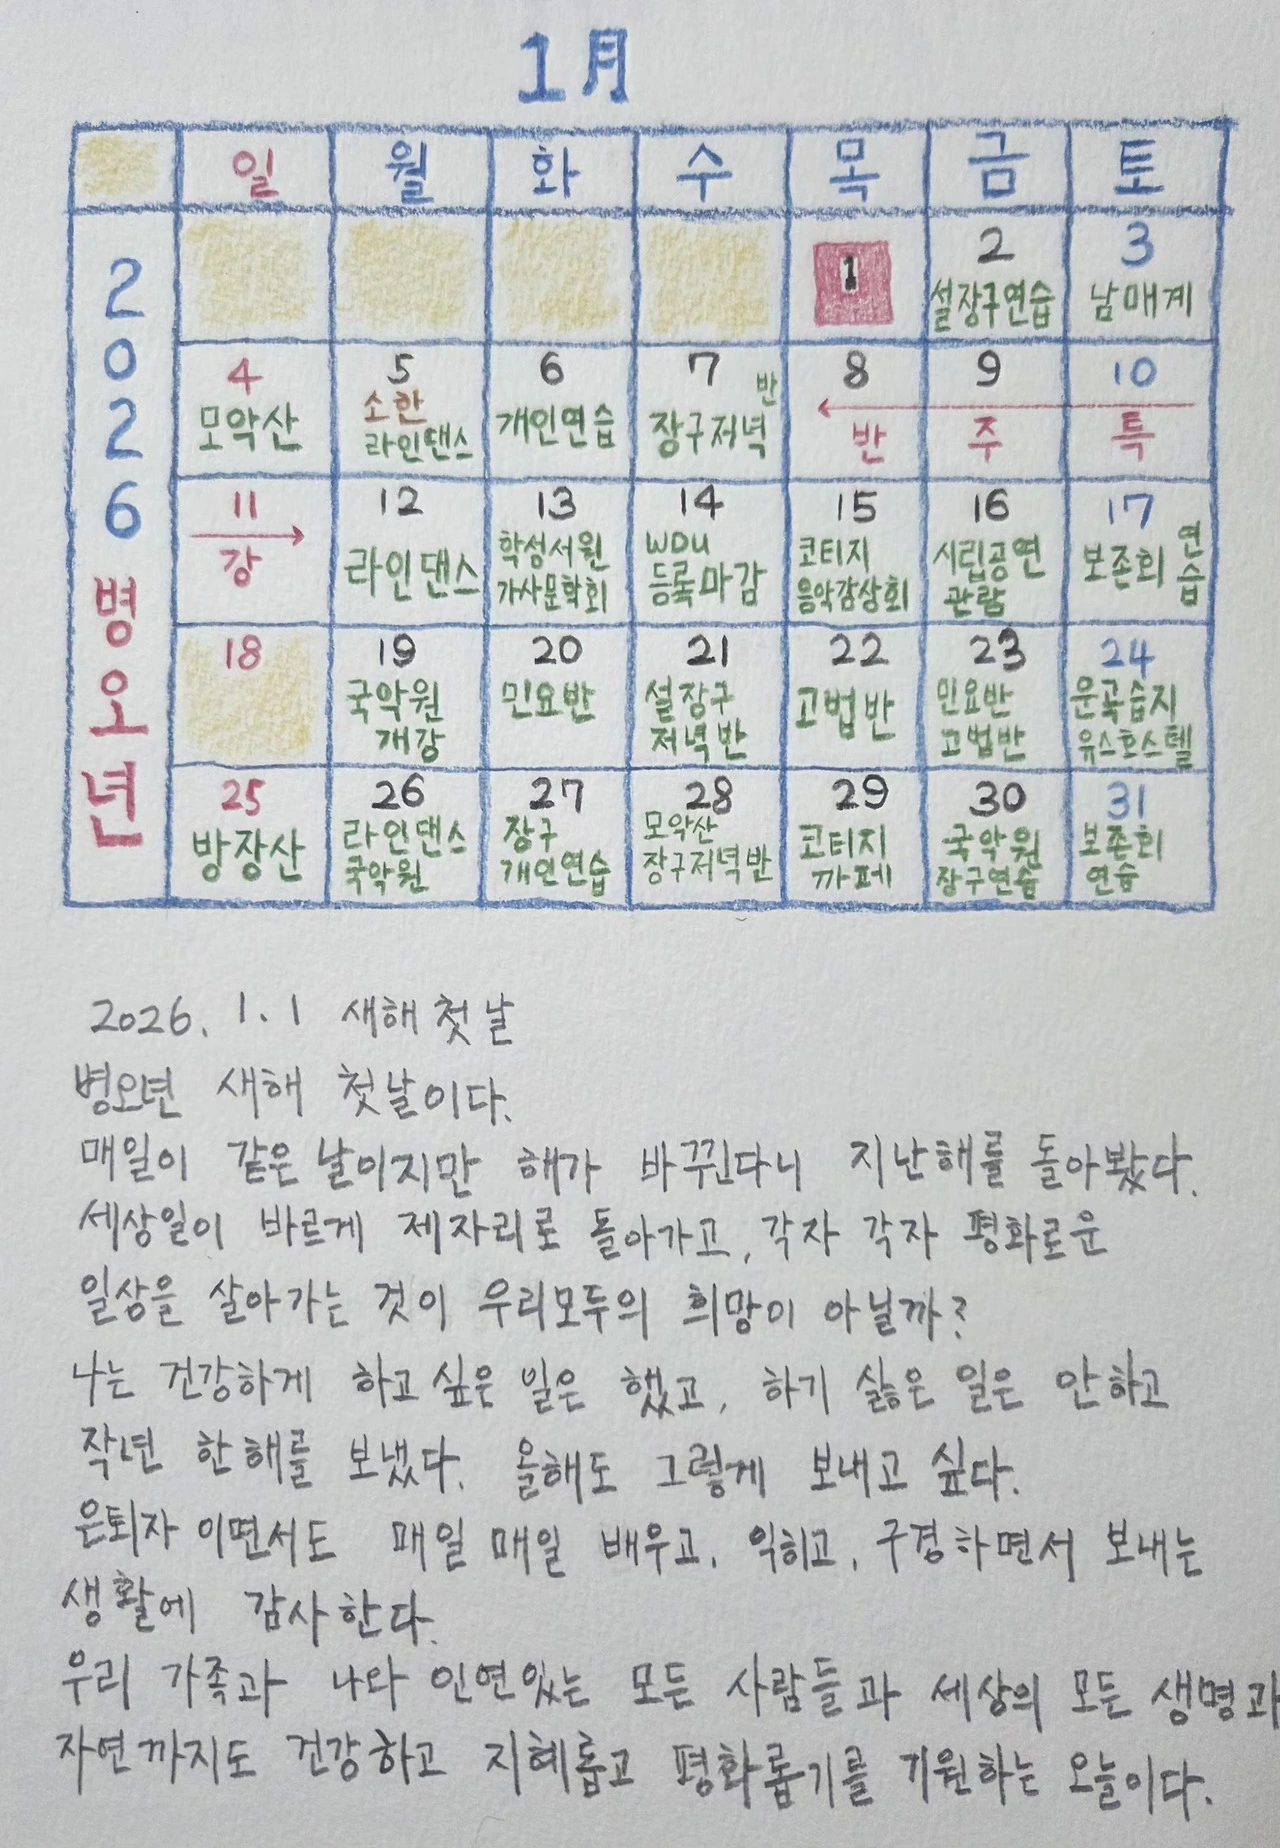 1月
일 월 화 수 목 금 토
2026 병오년
1 2 3
설장구연습 남매계
4 5 6 7 8 9 10
모악산 소한 개인연습 반 장구저녁 반 주 특
라인댄스
11 12 13 14 15 16 17
강 라인댄스 학성서원 WDU 코티지 시립공연 보존회 연습
가사문학회 등록마감 음악감상회 관람
18 19 20 21 22 23 24
국악원 민요반 설장구 고법반 민요반 운곡습지
개강 저녁반 고법반 유스호스텔
25 26 27 28 29 30 31
방장산 라인댄스 장구 모악산 코티지 국악원 보존회
국악원 개인연습 장구저녁반 까페 장구연습 연습
2026. 1. 1 새해 첫날
병오년 새해 첫날이다.
매일이 같은 날이지만 해가 바뀐다니 지난해를 돌아봤다.
세상일이 바르게 제자리로 돌아가고, 각자 각자 평화로운
일상을 살아가는 것이 우리모두의 희망이 아닐까?
나는 건강하게 하고 싶은 일은 했고, 하기 싫은 일은 안하고
작년 한해를 보냈다. 올해도 그렇게 보내고 싶다.
은퇴자 이면서도 매일 매일 배우고, 익히고, 구경하면서 보내는
생활에 감사한다.
우리 가족과 나와 인연있는 모든 사람들과 세상의 모든 생명과
자연까지도 건강하고 지혜롭고 평화롭기를 기원하는 오늘이다.